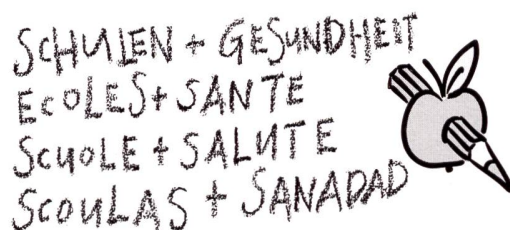 SCHULEN + GESUNDHEIT
ECOLES + SANTE
SCUOLE + SALUTE
SCOULAS + SANADAD